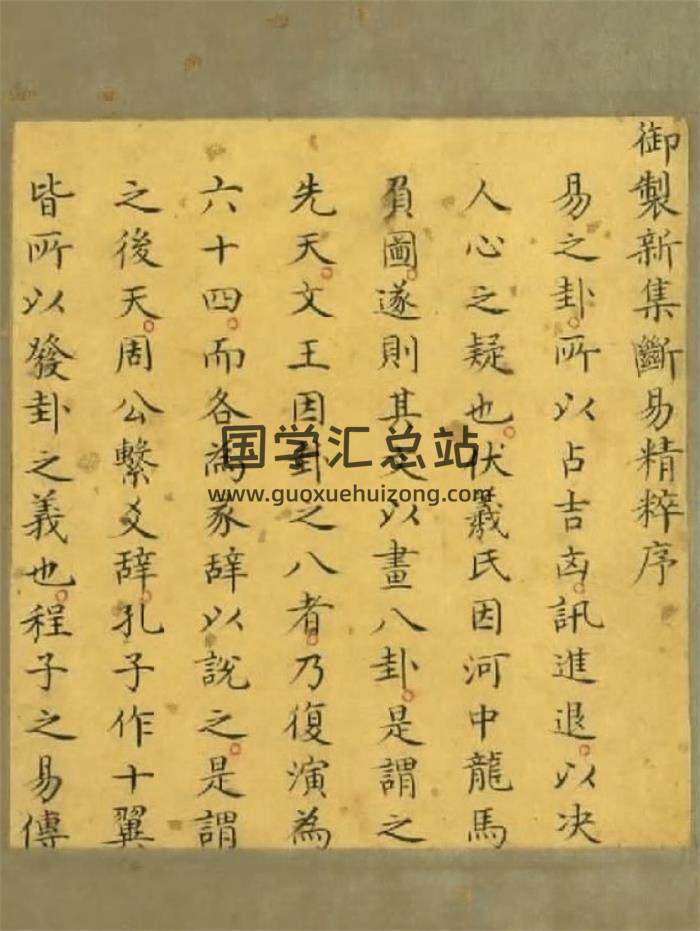 御製新集斷易精粹序
易之卦。所以占吉凶。訊進退。以决
人心之疑也。伏羲氏因河中龍馬
負圖。遂則其文以畫八卦。是謂之
先天。文王因卦之八者。乃復演為
六十四。而各為彖辭以說之。是謂
之後天。周公繫爻辭。孔子作十翼
皆所以發卦之義也。程子之易傳
国学汇总站
www.guoxuehuizong.com